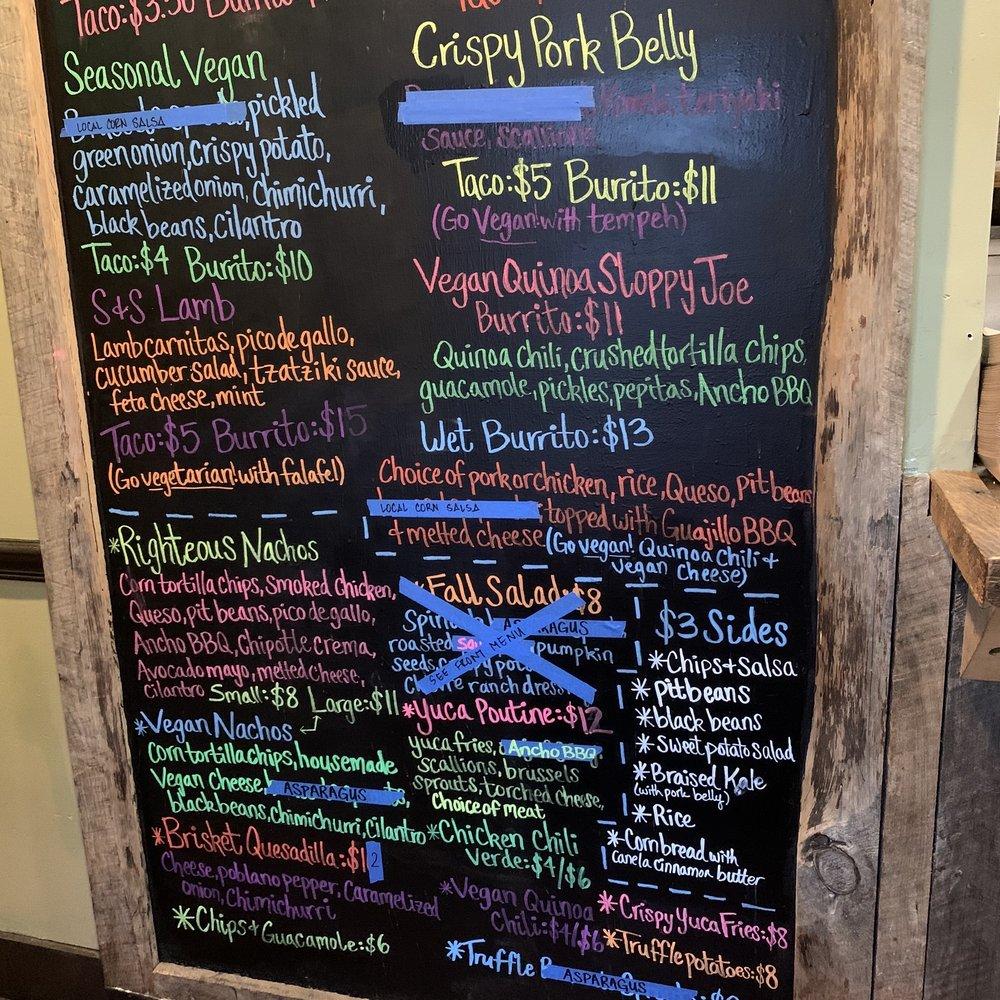 Taco:$3.50 Burrito
Seasonal Vegan
LOCAL CORN SALSA
, pickled
green onion, crispy potato,
caramelized onion, chimichurri,
black beans, cilantro
Taco:$4 Burrito:$10
S&S Lamb
Lamb carnitas, pico de gallo,
cucumber salad, tzatziki sauce,
feta cheese, mint
Taco:$5 Burrito:$15
(Go vegetarian! with falafel)
*Righteous Nachos
Corn tortilla chips, Smoked chicken,
Queso, pit beans, pico de gallo,
Ancho BBQ, Chipotle crema,
Avocado mayo, melted cheese,
cilantro Small:$8 Large:$11
*Vegan Nachos
corn tortilla chips, housemade
Vegan Cheese, ASPARAGUS
black beans, chimichurri, Cilantro
*Brisket Quesadilla:$12
Cheese, poblano pepper, Caramelized
onion, Chimichurri
*Chips & Guacamole:$6
Crispy Pork Belly
teriyaki
sauce, scallions
Taco:$5 Burrito:$11
(Go Vegan! with tempeh)
Vegan Quinoa Sloppy Joe
Burrito:$11
Quinoa chili, crushed tortilla chips,
guacamole, pickles, pepitas, Ancho BBQ
Wet Burrito:$13
Choice of pork or chicken, rice, Queso, pit beans
LOCAL CORN SALSA ; topped with Guajillo BBQ
& melted cheese (Go vegan! Quinoa Chili +
Vegan Cheese)
*Fall Salad:$8
ASPARAGUS
roasted pumpkin
seeds,
SEE FRONT MENU
ranch dress
*Yuca Poutine:$12
yuca fries, Ancho BBQ
scallions, brussels
sprouts, torched cheese,
Choice of meat
*Chicken Chili
Verde:$4/$6
*Vegan Quinoa
Chili:$4/$6
*Truffle ASPARAGUS
$3 Sides
*Chips + Salsa
*pit beans
*black beans
*Sweet potato Salad
*Braised Kale
(with pork belly)
*Rice
*Cornbread with
canela cinnamon butter
*Crispy Yuca Fries:$8
*Truffle potatoes:$8